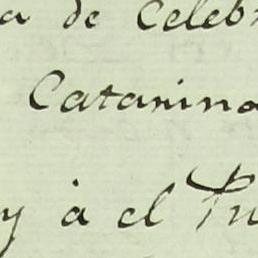 a de Celeb
Catanina
y à el Pu